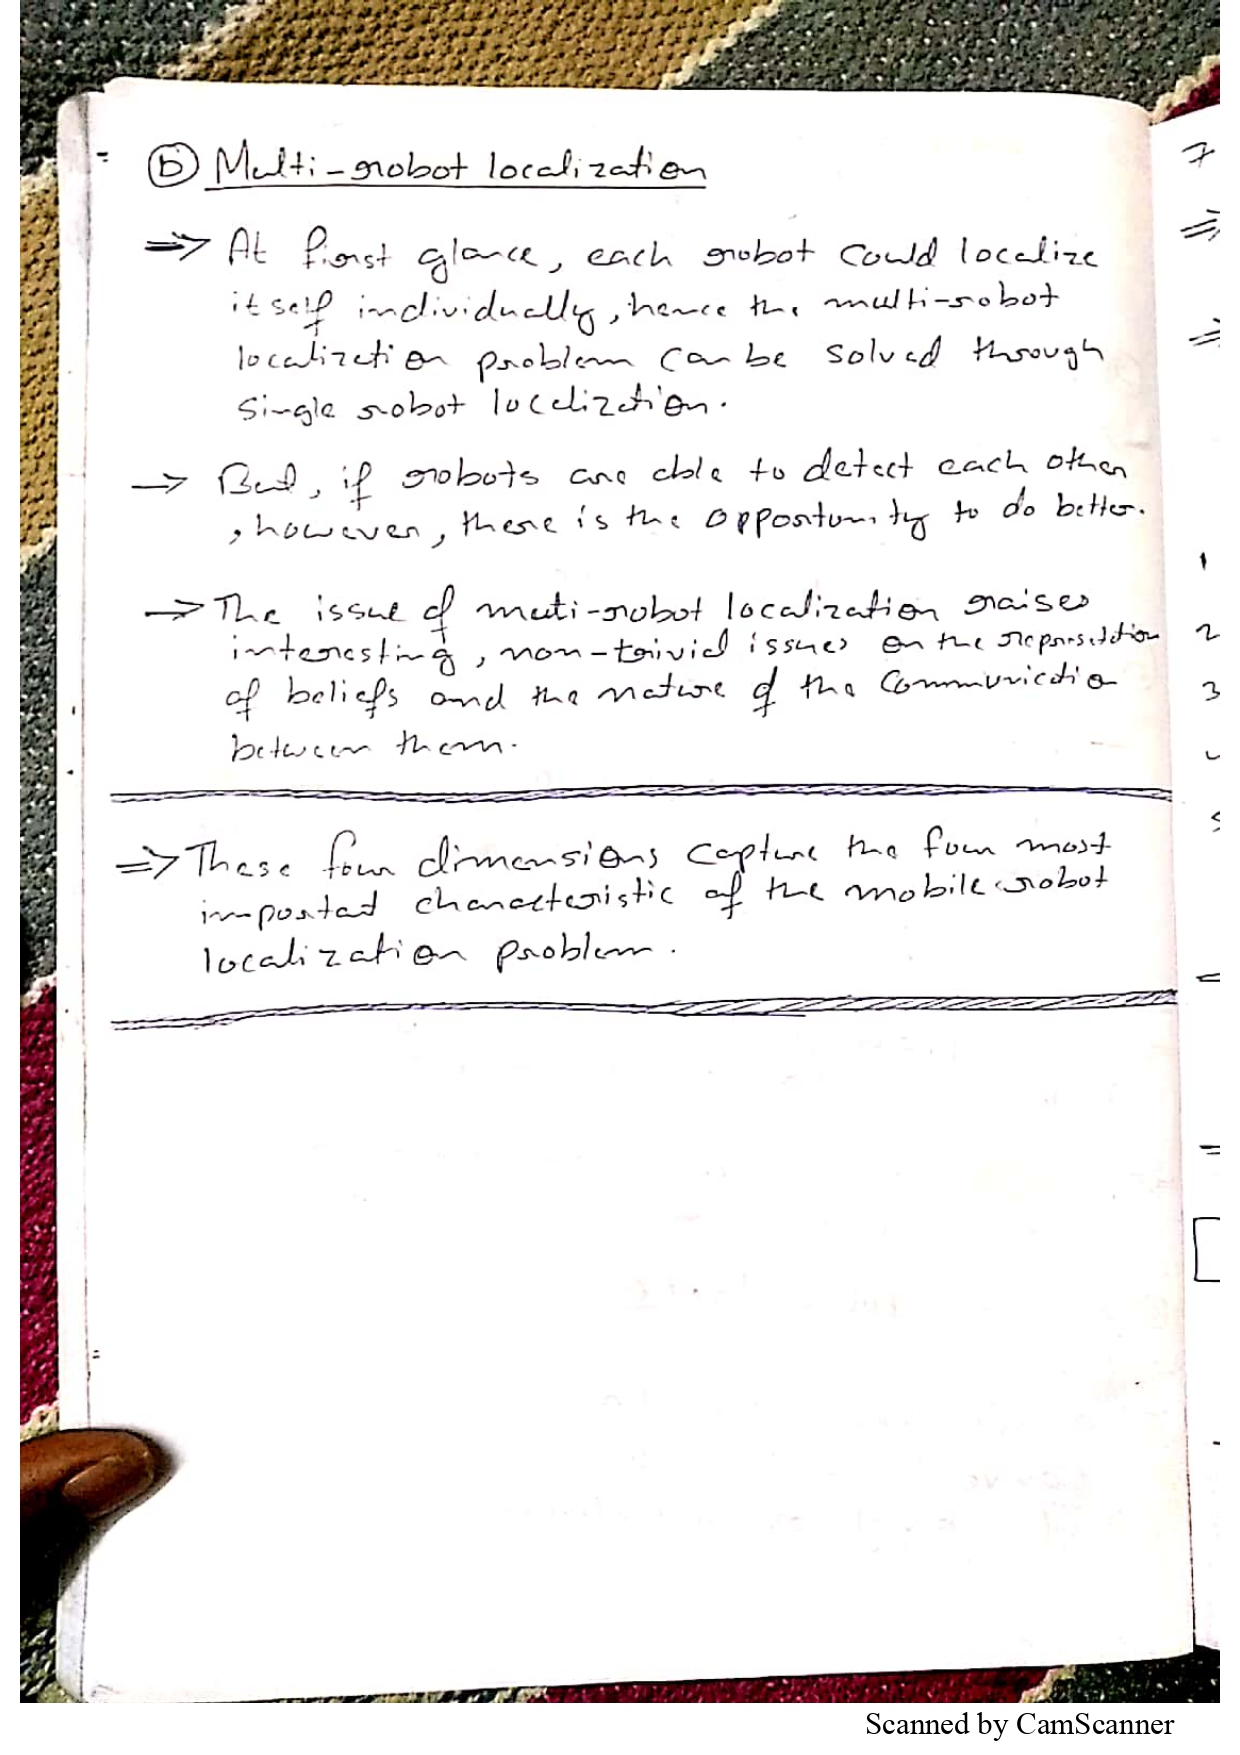 ⓑ Multi-robot localization
⇒ At first glance, each robot could localize
itself individually, hence the multi-robot
localization problem can be solved through
single robot localization.
→ But, if robots are able to detect each other
, however, there is the opportunity to do better.
→ The issue of multi-robot localization raises
interesting, non-trivial issues on the
of beliefs and the nature of the communicatio
between them.
⇒ These four dimensions capture the four most
important characteristic of the mobile robot
localization problem.
7
⇒
⇒
1
2
3
Scanned by CamScanner